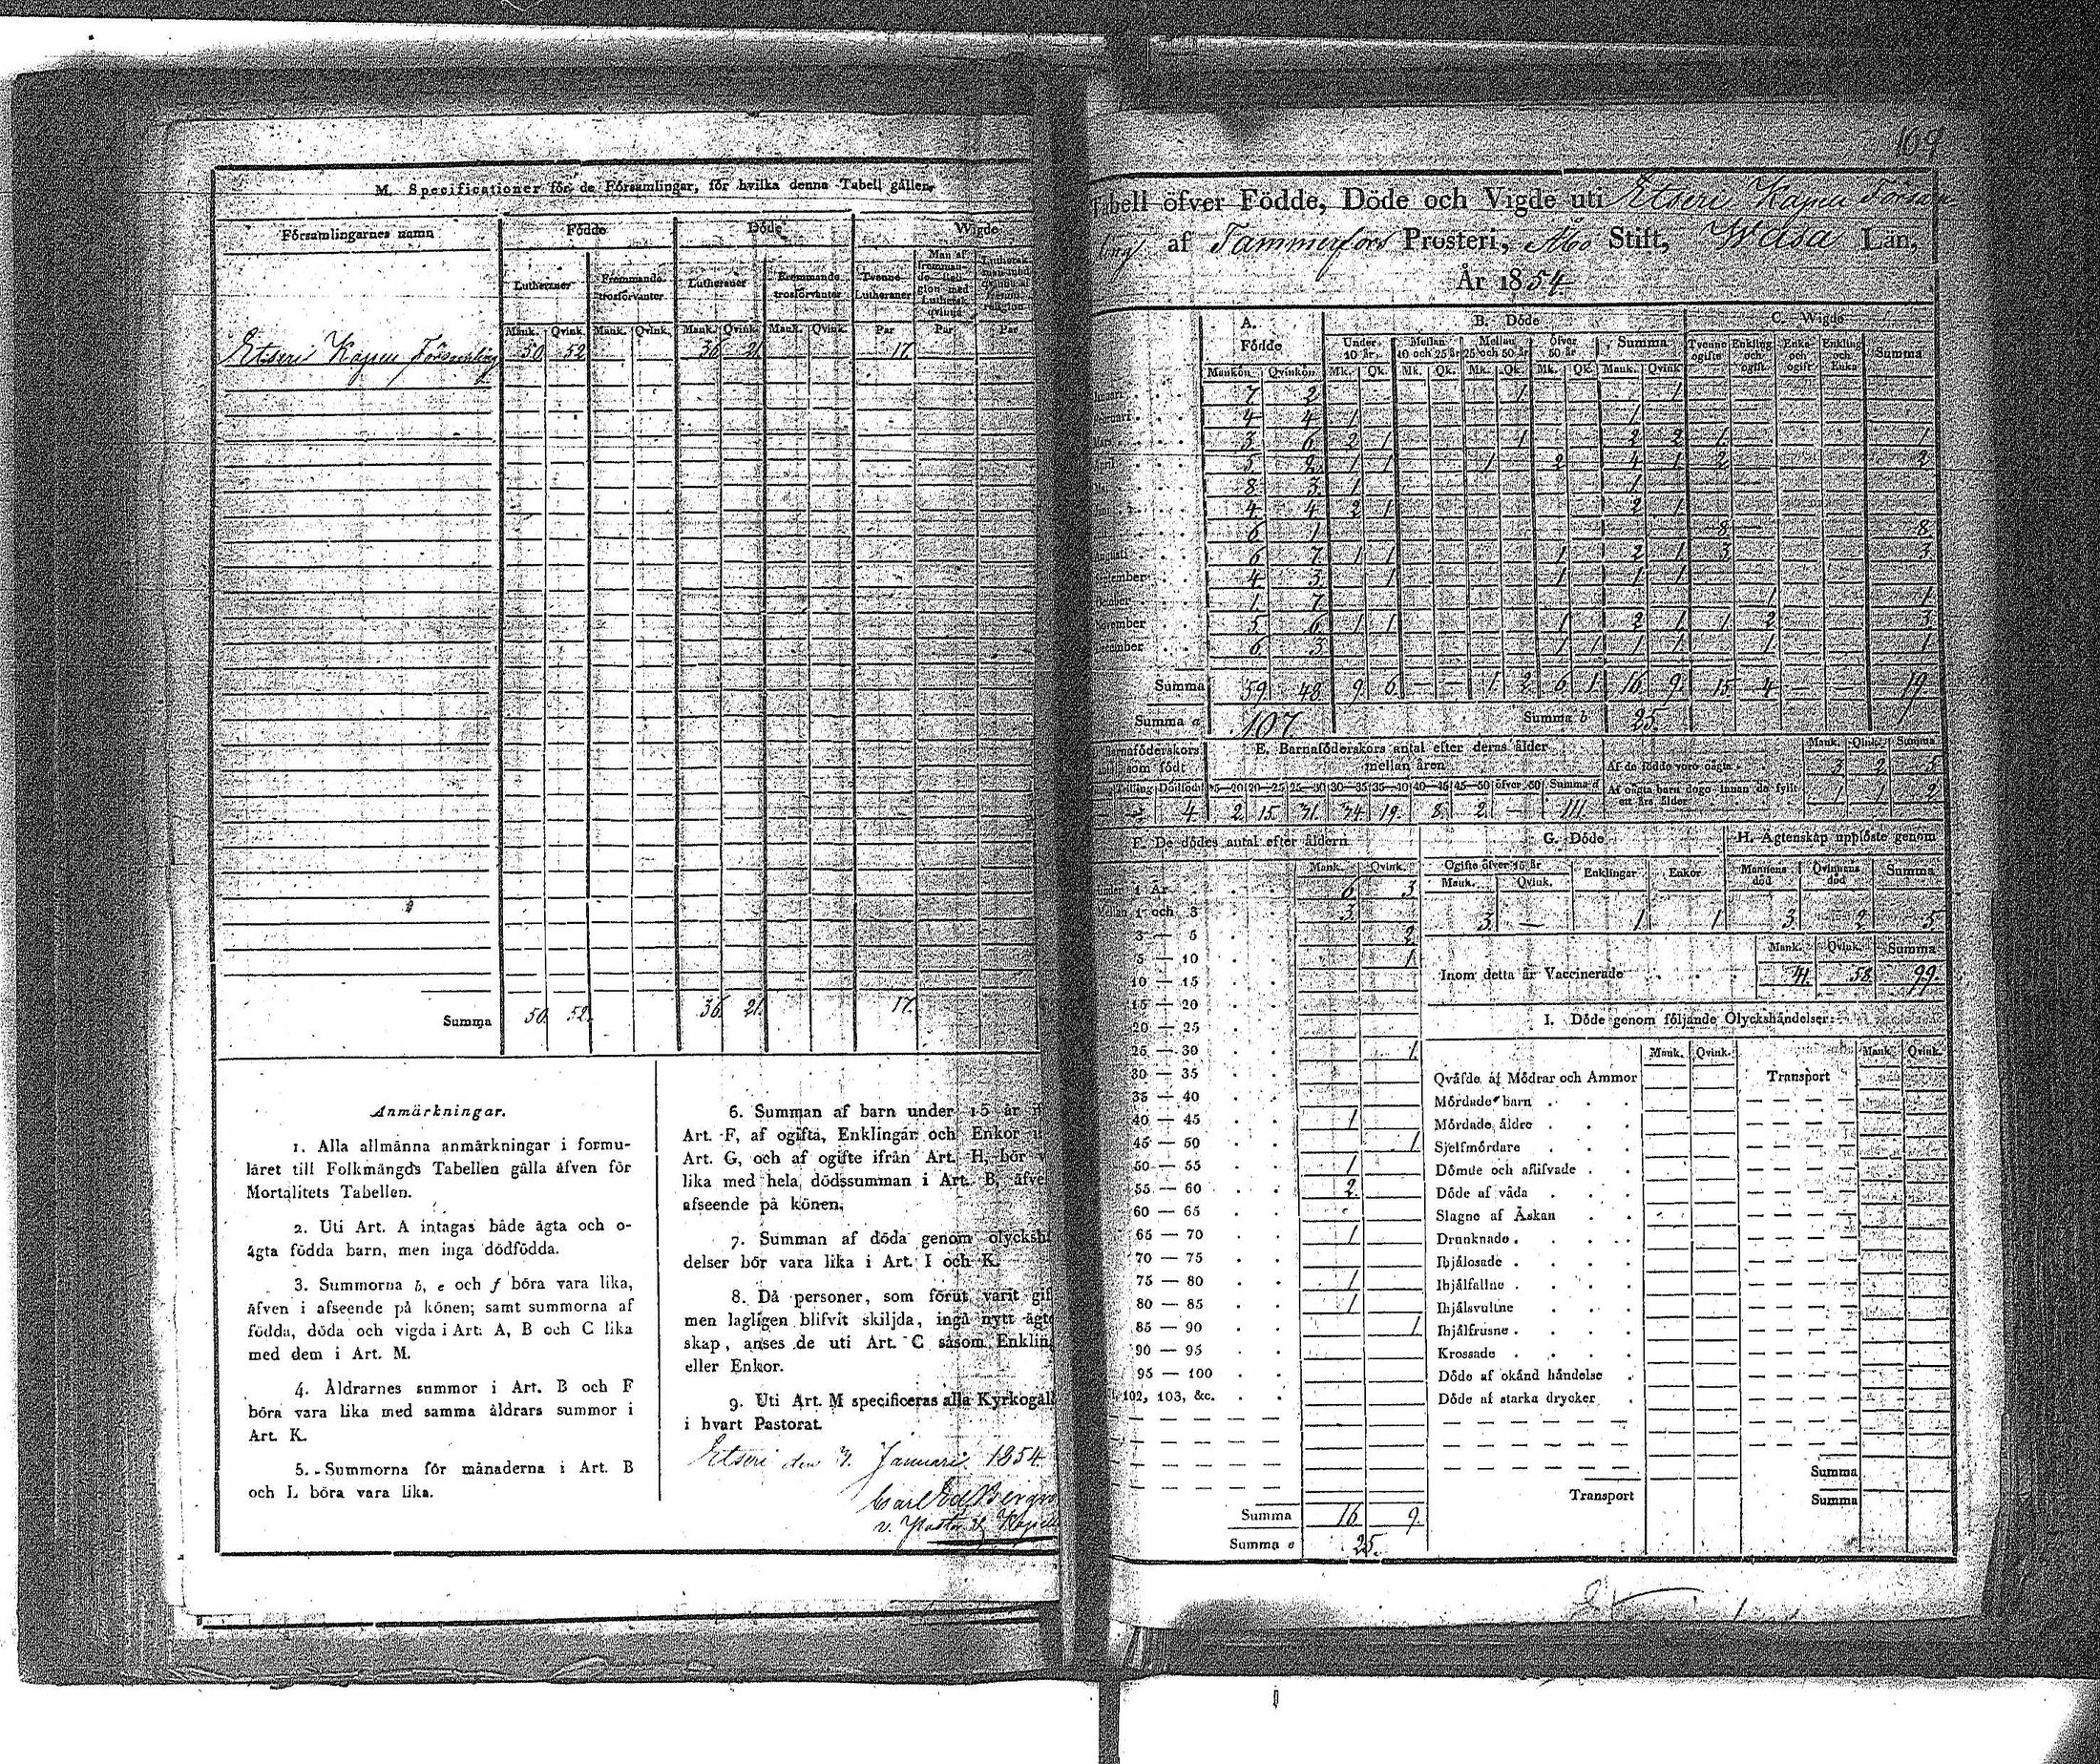 M. Specificationer för de Församlingar, för hvilka denna Tabell gäller.
Församlingarnes namn Födde Döde Wigde
Lutheraner Fremmande trosförvanter Lutheraner Fremmande trosförvanter Tvenne Lutheraner Man af fremmande religion med Luthersk qvinna
Mank. Qvink. Mank. Qvink. Mank. Qvink. Mank. Qvink. Par Par Par
Etseri Kapell Församling 50 52 36 21 17.
Summa 50. 52. 36 21. 17.
Anmärkningar.
1. Alla allmänna anmärkningar i formu-
läret till Folkmängds Tabellen gälla äfven för
Mortalitets Tabellen.
2. Uti Art. A intagas både ägta och o-
ägta födda barn, men inga dödfödda.
3. Summorna b, e och f böra vara lika,
äfven i afseende på könen; samt summorna af
födda, döda och vigda i Art. A, B och C lika
med dem i Art. M.
4. Åldrarnes summor i Art. B och F
böra vara lika med samma åldrars summor i
Art. K.
5. Summorna för månaderna i Art. B
och L böra vara lika.
6. Summan af barn under 15 år
Art. F, af ogifta, Enklingar och Enkor
Art. G, och af ogifte ifrån Art. H, bör
lika med hela dödssumman i Art. B,
afseende på könen.
7. Summan af döda genom
delser bör vara lika i Art. I och K.
8. Då personer, som förut varit
men lagligen blifvit skiljda, ingå nytt
skap, anses de uti Art. C såsom
eller Enkor.
9. Uti Art. M specificeras alla
i hvart Pastorat.
Etseri den 31. Januari 1854
Carl
v. Pastor
109
Tabell öfver Födde, Döde och Vigde uti Etseri Kapell
af Tammerfors Prosteri, Åbo Stift, Wasa Län,
År 1854.
A. Födde B. Döde C. Wigde
Under 10 år. Mellan 10 och 25 år Mellan 25 och 50 år Öfver 50 år Summa Tvenne ogifte Enkling och ogift Enka och ogift Enkling och Enka Summa
Mankön Qvinkön Mk. Qk. Mk. Qk. Mk. Qk. Mk. Qk. Mank. Qvink.
7 2 1 1
4 4 1 1
3 6 2 1 1 2 2 1 1
April 5 2 1 1 1 2 4 1 2 2
8 3 1 1
4 4 2 1 2 1
6 1 8 8
6 7 1 1 1 2 1 3 3
September 4 3 1 1 1 1
1 7 1 1
November 5 6 1 1 1 2 1 1 2 3
December 6 3 1 1 1 1 1 1
Summa 59 48 9 6 — — 1 2 6 1 16 9 15 4 — — 19
Summa a 107 Summa b 25.
Barnaföderskors som födt E. Barnaföderskors antal efter deras ålder mellan åren Mank. Qvink. Summa
Af de födde voro oägta 3 2 5
Trilling Dödfödt 20—25 25—30 30—35 35—40 40—45 45—50 öfver 50 Summa d Af oägta barn dogo innan de fyllt ett års ålder 1 1 2
4 2 15. 31. 34 19. 8 2 — 111.
F. De dödes antal efter åldern G. Döde H. Ägtenskap upplöste genom
Mank. Qvink. Ogifte öfver 15 år Enklingar Enkor Mannens död Qvinnans död Summa
Under 1 År 6 3 Mank. Qvink.
Mellan 1 och 3 3 3 — 1 1 3 2 5
3 — 5 2
5 — 10 1 Mank. Qvink. Summa
10 — 15 Inom detta år Vaccinerade 41. 58 99.
15 — 20
20 — 25 I. Döde genom följande Olyckshändelser:
25 — 30 1 Mank. Qvink. Mank. Qvink.
30 — 35 Qväfde af Mödrar och Ammor Transport
35 — 40 Mördade barn
40 — 45 1 Mördade äldre
45 — 50 1 Sjelfmördare
50 — 55 1 Dömde och aflifvade
55 — 60 2 Döde af våda
60 — 65 Slagne af Åskan
65 — 70 1 Drunknade
70 — 75 Ihjälosade
75 — 80 1 Ihjälfallne
80 — 85 1 Ihjälsvultne
85 — 90 1 Ihjälfrusne
90 — 95 Krossade
95 — 100 Döde af okänd händelse
102, 103, &c. Döde af starka drycker
Summa
Transport Summa
Summa 16 9.
Summa e 25.